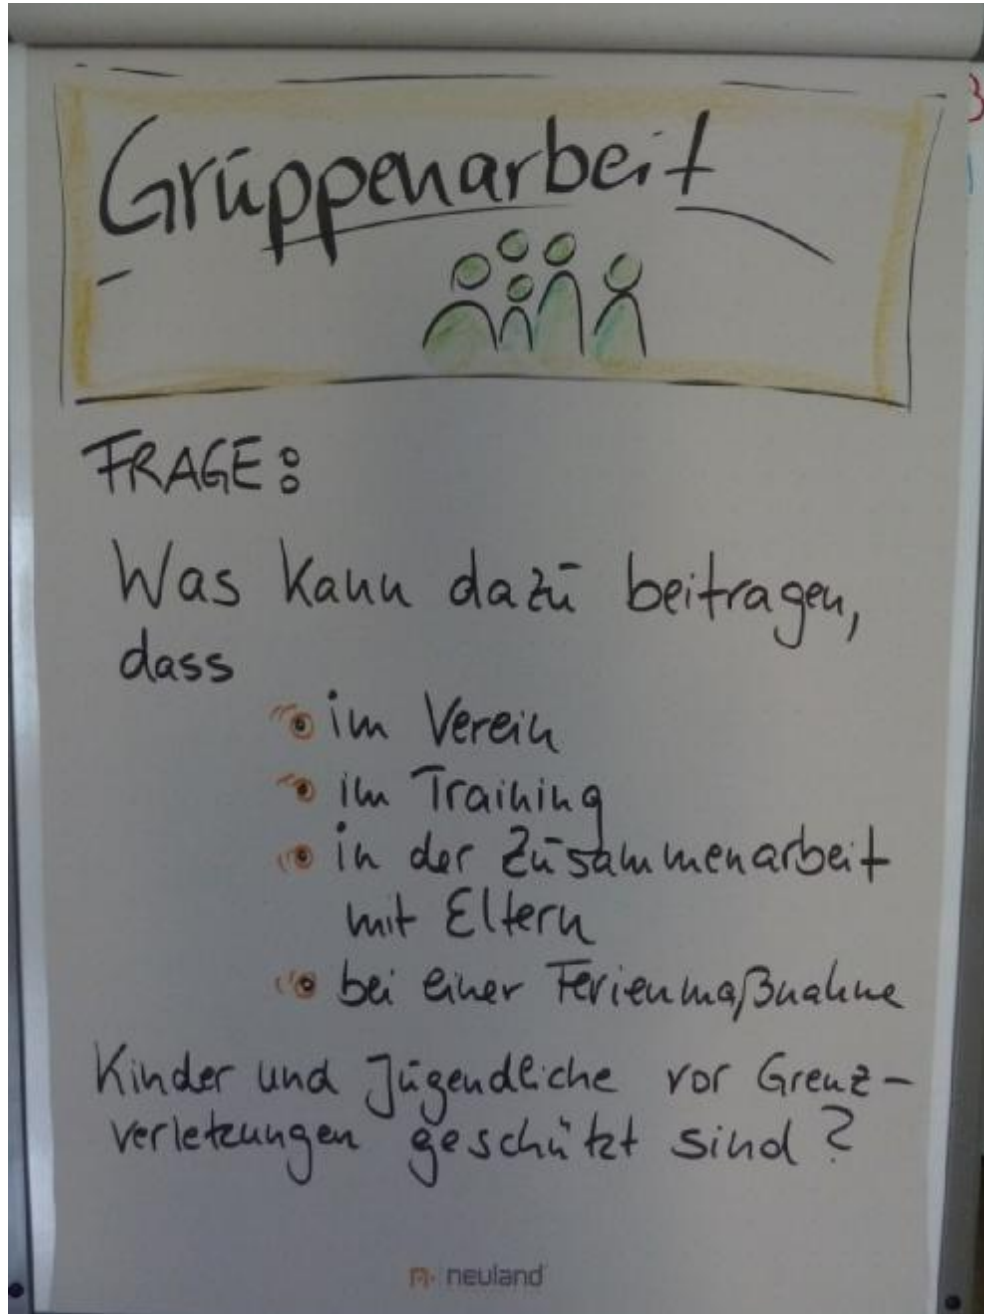 Gruppenarbeit
FRAGE:
Was kann dazu beitragen,
dass
im Verein
im Training
in der Zusammenarbeit
mit Eltern
bei einer Ferienmaßnahme
Kinder und Jugendliche vor Grenz-
verletzungen geschützt sind?
neuland